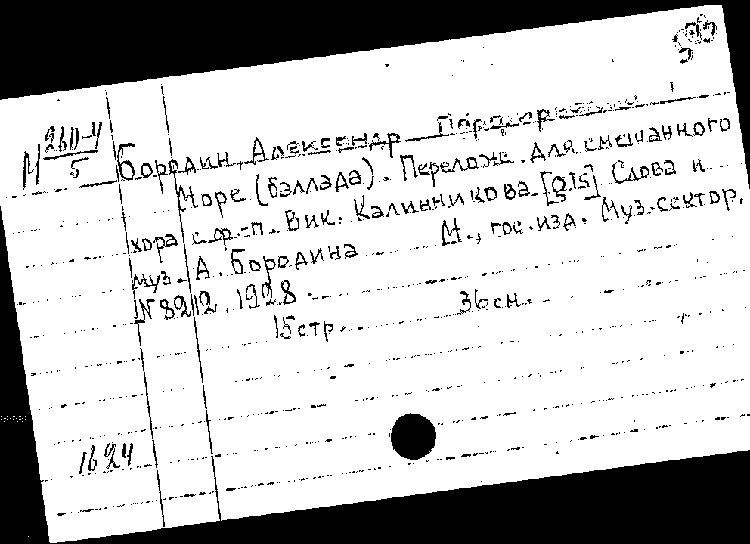 М 260-4
5
Бородин, Александр Порфирьевич
Море (баллада). Перелож. для смешанного
хора с ф.-п. Вик. Калинникова. [О.Г.] Слова и
муз. А. Бородина М., гос. изд. Муз. сектор,
N 8212. 1928.
15 стр. 36 см.
1624